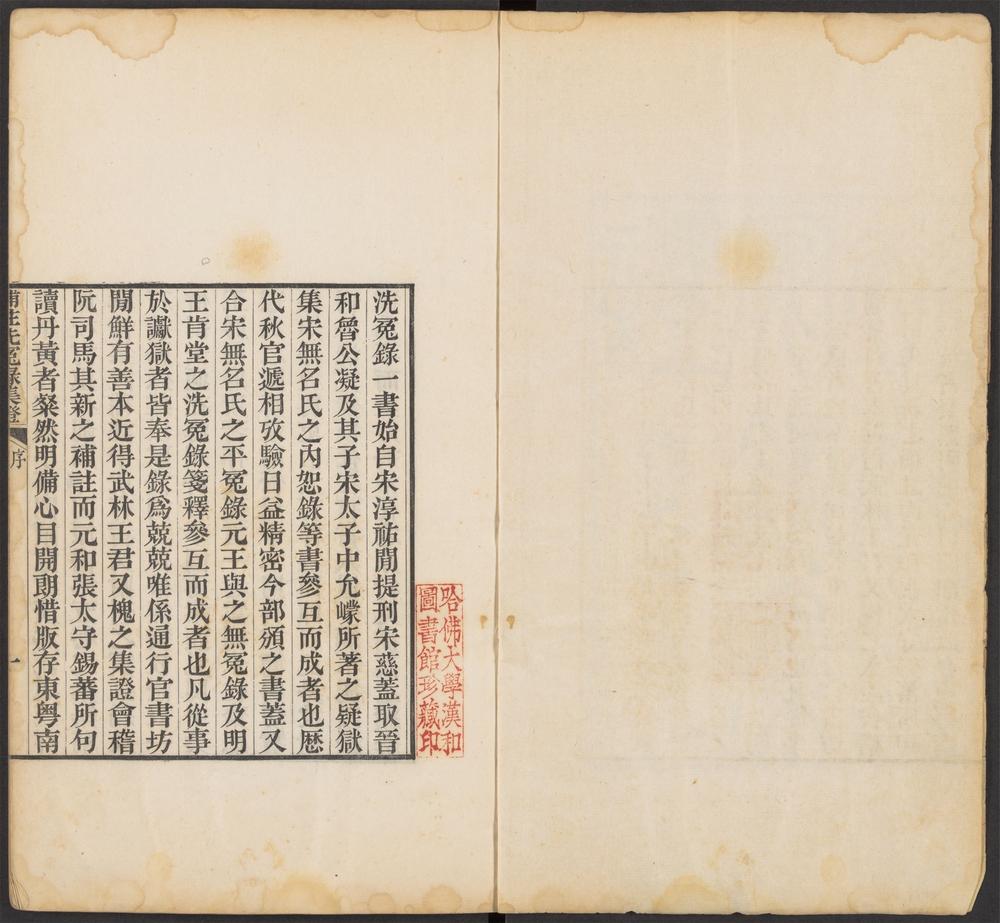 哈佛大學漢和
圖書館珍藏印
洗冤錄一書始自宋淳祐閒提刑宋慈蓋取晉
和魯公凝及其子宋太子中允㠓所著之疑獄
集宋無名氏之內恕錄等書參互而成者也歷
代秋官遞相攷驗日益精密今部頒之書蓋又
合宋無名氏之平冤錄元王與之無冤錄及明
王肯堂之洗冤錄箋釋參互而成者也凡從事
於讞獄者皆奉是錄爲兢兢唯係通行官書坊
閒鮮有善本近得武林王君又槐之集證會稽
阮司馬其新之補註而元和張太守錫蕃所句
讀丹黃者粲然明備心目開朗惜版存東粵南
補註洗冤錄集證 序 一